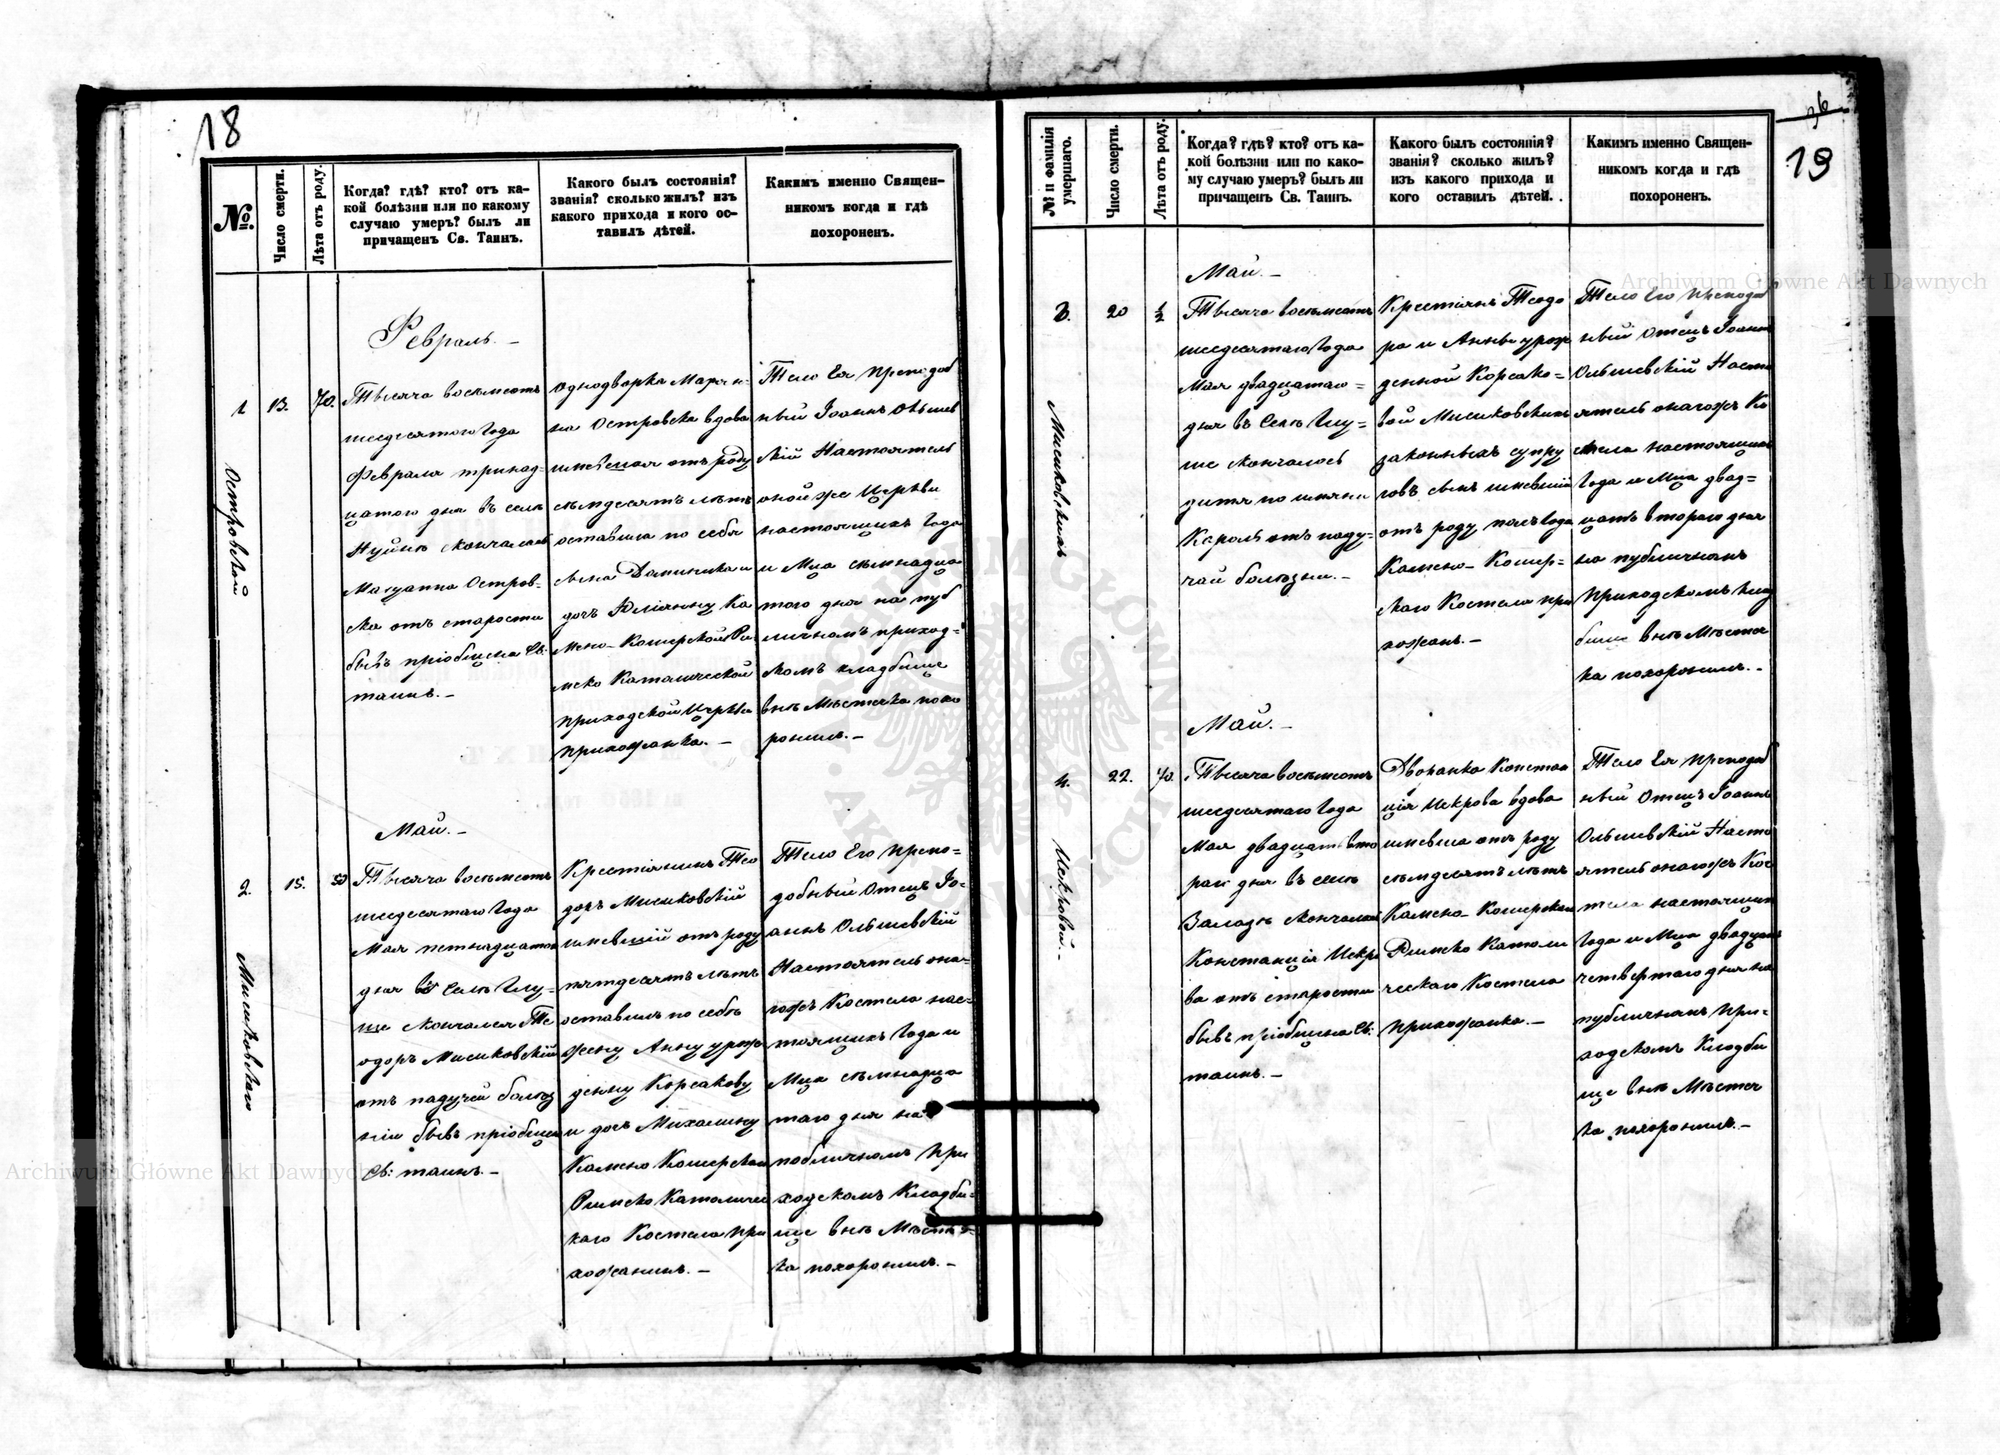 18
№.
Число смерти.
Лѣта отъ роду.
Когда? гдѣ? кто? отъ ка-
кой болѣзни или по какому
случаю умеръ? былъ ли
причащенъ Св. Таинъ.
Какого былъ состоянія?
званія? сколько жилъ? изъ
какого прихода и кого ос-
тавилъ дѣтей.
Какимъ именно Священ-
никомъ когда и гдѣ
похороненъ.
Февраль. –
1
Островской
13.
70.
Тысяча восемьсотъ
шесдесятого Года
Февраля тринад-
цатого дня въ селѣ
Нуйнѣ скончалась
Марианна Остров-
ска отъ старости
бывъ пріобщена Св:
таинъ. –
Однодворка Мариан-
на Островска вдова
имѣвшая отъ роду
семдесятъ лѣтъ
оставила по себѣ
сына Доминика и
дочь Юліянну Ка
мено-Коширской Ри
мско Католической
приходской Церкви
прихожанка. –
Тело Ея Преподоб
ный Іоаннъ Ольшев
скій Настоятель
оной же Церкви
настоящихъ Года
и Мца семнадца
того дня на пуб
личномъ приход-
скомъ кладбище
внѣ Мѣстечка похо
ронилъ. –
Май. –
2.
Мисиковскаго
15.
50
Тысяча восемьсотъ
шесдесятаго Года
Мая петнадцатого
дня въ Селѣ Глу-
ше скончался Те
одоръ Мисиковскій
отъ падучей болѣз
ни бывъ пріобщенъ
Св: таинъ. –
Крестіянинъ Тео
доръ Мисиковскій
имевшій отъ роду
пятдесятъ лѣтъ
оставилъ по себѣ
жену Анну урож
денну Корсакову
и дочь Михалину
Камено Коширскаго
Римско Католичес
каго Костела при
хожанинъ. –
Тело Его Препо-
добный Отецъ Іо-
аннъ Ольшевскій
Настоятель она-
гожъ Костела нас-
тоящихъ Года и
Мца семнадца
таго дня на
публичномъ При
ходскомъ Кладби-
ще внѣ Мѣстеч-
ка похоронилъ. –
36
19
№ и фамилія
умершаго.
Число смерти.
Лѣта отъ роду.
Когда? гдѣ? кто? отъ ка-
кой болѣзни или по како-
му случаю умеръ? былъ ли
причащенъ Св. Таинъ.
Какого былъ состоянія?
званія? сколько жилъ?
изъ какого прихода и
кого оставилъ дѣтей.
Какимъ именно Священ-
никомъ когда и гдѣ
похороненъ.
Май. –
3.
Мисиковскихъ
20
1/2
Тысяча восемьсотъ
шесдесятаго Года
Мая двадцатаго
дня въ Селѣ Глу-
ше скончалось
дитя по имени
Кароль отъ паду-
чай болѣзни. –
Крестіянъ Теодо
ра и Анны урож
денной Корсако-
вой Мисиковскихъ
законныхъ супру
говъ сынъ имевшій
отъ роду полъ года
Камено-Кошир-
скаго Костела при
хожанъ. –
Тело Его Преподоб
ный Отецъ Іоаннъ
Ольшевскій Насто
ятель онагожъ Ко
стела настоящихъ
Года и Мца двад-
цать второго дня
на публичномъ
Приходскомъ Клад
бище внѣ Мѣстеч
ка похоронилъ. –
Май. –
4.
Искровой. –
22.
70.
Тысяча восемьсотъ
шесдесятаго Года
Мая двадцать вто
рого дня въ селѣ
Залазѣ скончалась
Констанція Искро
ва отъ старости
бывъ пріобщена Св:
таинъ. –
Дворанка Констан
ція Искрова вдова
имевша отъ роду
семдесятъ лѣтъ
Камено-Коширскаго
Римско Католи
ческаго Костела
прихожанка. –
Тело Ея Преподоб
ный Отецъ Іоаннъ
Ольшевскій Насто
ятель онагожъ Кос
тела настоящихъ
Года и Мца двадцать
четвертаго дня на
публичномъ При-
ходскомъ Кладби
ще внѣ Мѣстеч
ка похоронилъ. –
Archiwum Główne Akt Dawnych
Archiwum Główne Akt Dawnych